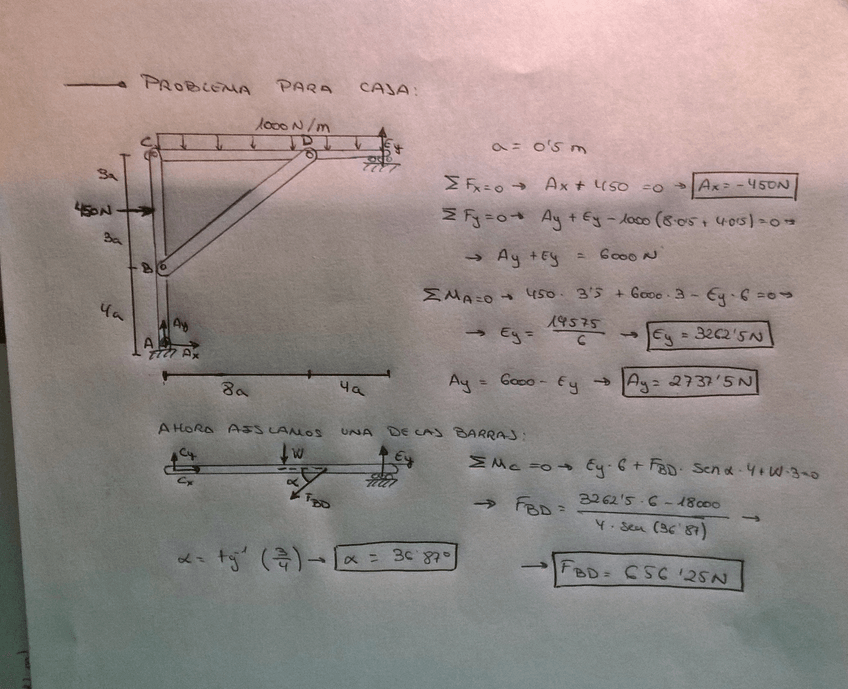 PROBLEMA PARA CASA:
1000 N/m
C
D
Ey
3a
450N
3a
B
4a
Ay
A
Ax
8a
4a
a = 0'5 m
ΣFx=0 → Ax + 450 = 0 → Ax = -450N
ΣFy=0 → Ay + Ey - 1000 (8·0'5 + 4·0'5) = 0 →
→ Ay + Ey = 6000 N
ΣMA=0 → 450 · 3'5 + 6000 · 3 - Ey · 6 = 0 →
→ Ey = 19575/6 → Ey = 3262'5N
Ay = 6000 - Ey → Ay = 2737'5N
AHORA AISLAMOS UNA DE LAS BARRAS:
Cy
W
Ey
Cx
α
FBD
ΣMC = 0 → Ey · 6 + FBD · sen α · 4 + W · 3 = 0
→ FBD = 3262'5 · 6 - 18000 / 4 · sen (36'87) →
α = tg⁻¹ (3/4) → α = 36'87º
→ FBD = 656'25N